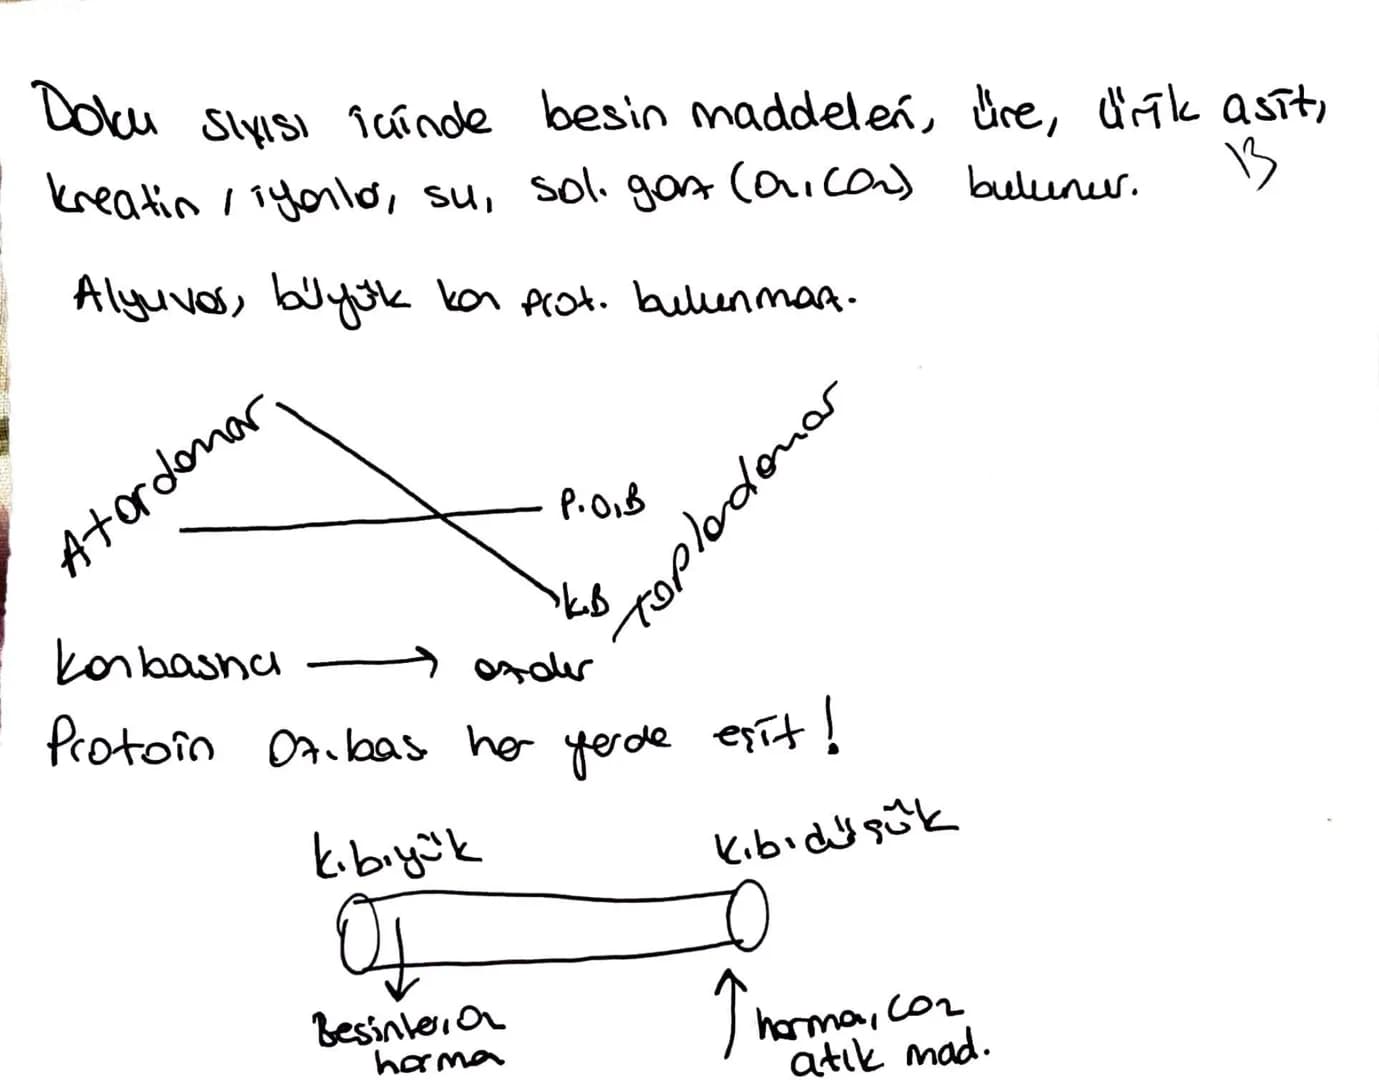 Doku sıvısı içinde besin maddeleri, üre, ürik asit,
kreatin, iyonlar, su, sol. gazı (O₂, CO₂) bulunur.
13
Alyuvar, büyük kan prot. bulunmaz.
Atardamar
P.O.B
K.B
Toplardamar
Kan basıncı → azalır
Protein Oz. bas her yerde eşit!
K.b. yük
K.b. düşük
Besinler, O₂
horma
horma, CO₂
atık mad.